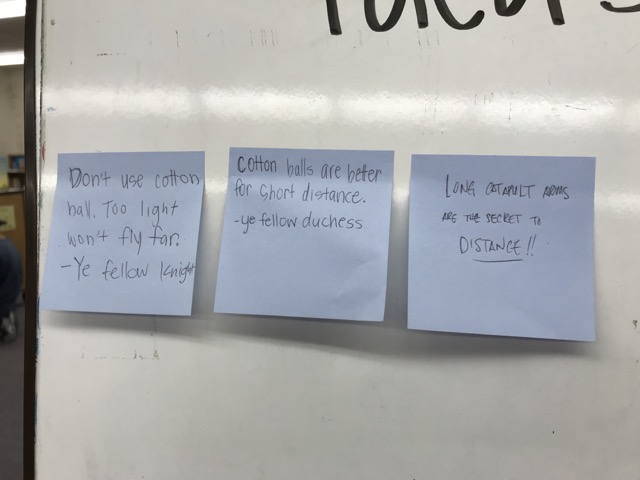 Don't use cotton
ball. Too light
won't fly far.
-Ye fellow knight
Cotton balls are better
for short distance.
-ye fellow duchess
LONG CATAPULT ARMS
ARE THE SECRET TO
DISTANCE!!